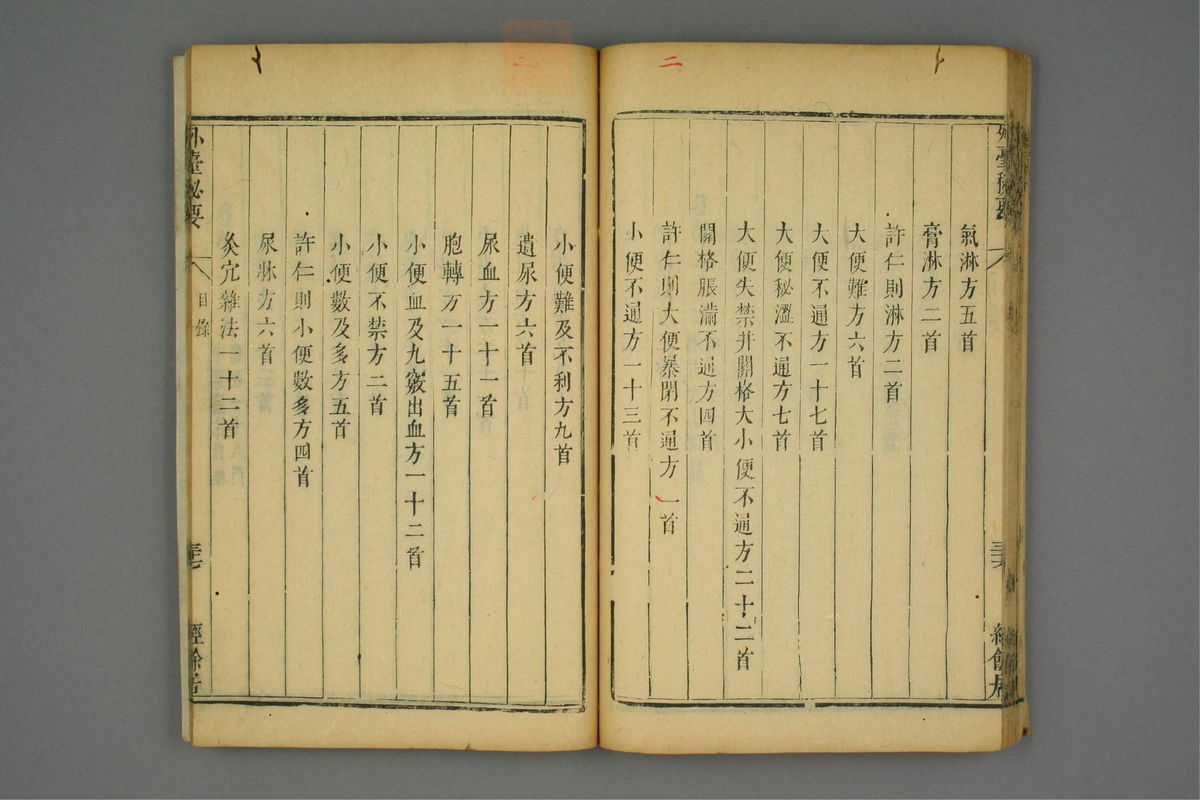 二
外臺秘要
氣淋方五首
膏淋方二首
許仁則淋方二首
大便難方六首
大便不通方一十七首
大便秘澀不通方七首
大便失禁并關格大小便不通方二十二首
關格脹滿不通方四首
許仁則大便暴閉不通方一首
小便不通方一十三首
小便難及不利方九首
遺尿方六首
尿血方一十一首
胞轉方一十五首
小便血及九竅出血方一十二首
小便不禁方二首
小便數及多方五首
許仁則小便數多方四首
尿牀方六首
灸宂雜法一十二首
外臺秘要
目錄
經餘居